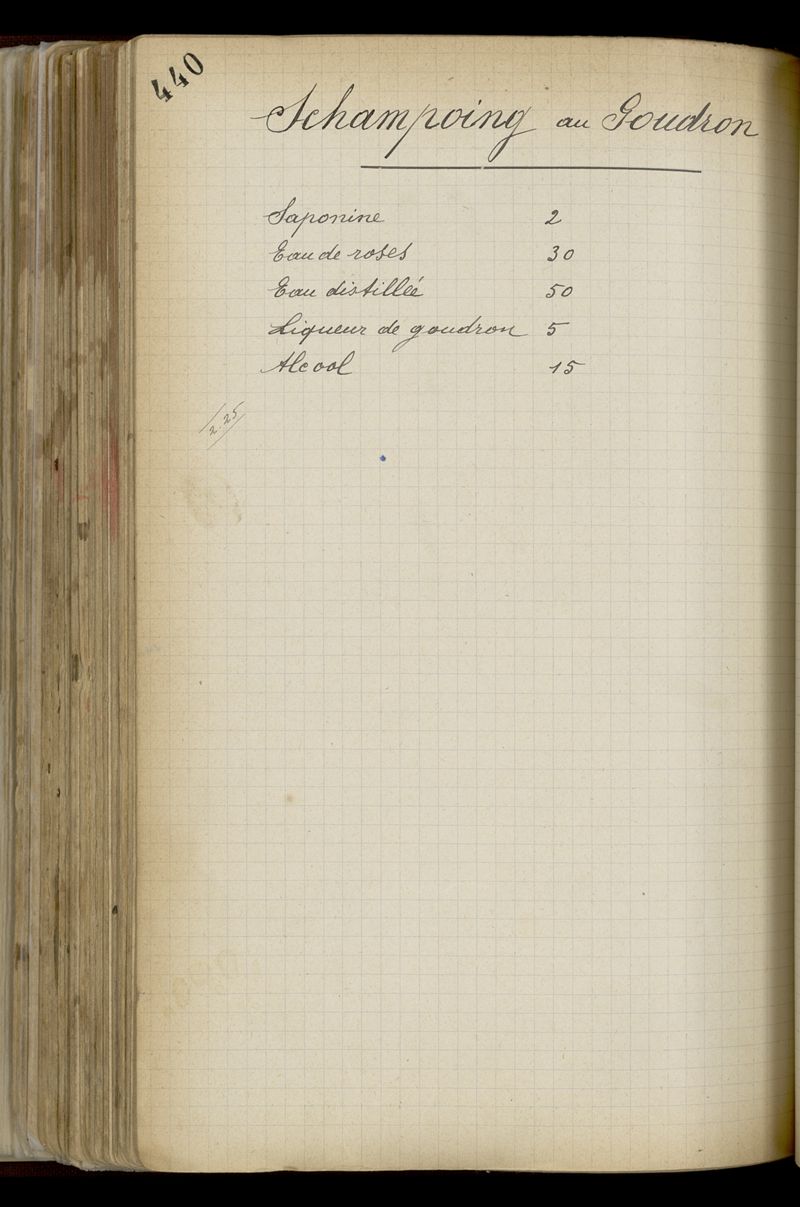 440
Schampoing au Goudron
Saponine 2
Eau de roses 30
Eau distillée 50
Liqueur de goudron 5
Alcool 15
2.25